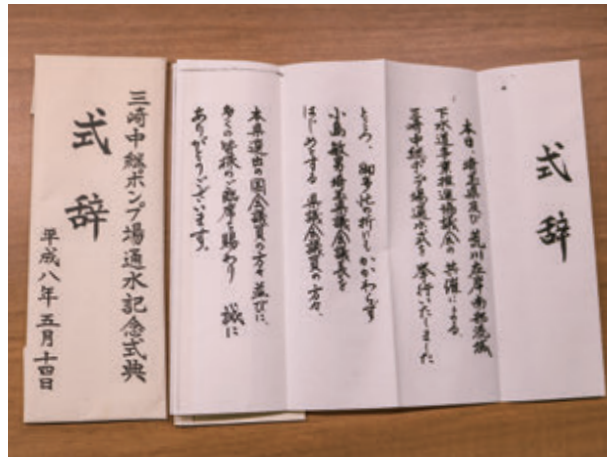 式辞
本日、埼玉県及び荒川左岸南部流域
下水道事業推進協議会の共催による
三崎中継ポンプ場通水式を挙行いたしました
ところ、御多忙の折にもかかわらず
小島敏男埼玉県議会議長を
はじめとする県議会議員の方々、
本県選出の国会議員の方々並びに、
多くの皆様のご臨席を賜わり 誠に
ありがとうございます。
三崎中継ポンプ場通水記念式典
式辞
平成八年五月十四日